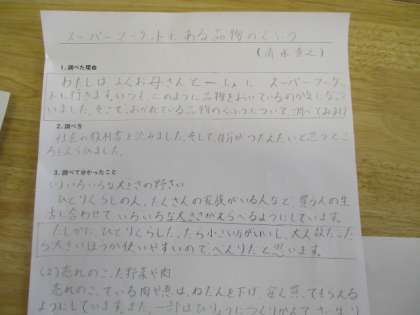 スーパーマーケットにある品物のくふう
1. 調べた理由
わたしは、よくお母さんといっしょに スーパーマーケッ
トに行きます。いつも、どのように品物をおいているのか気になって
いました。そこで、おかれている品物のくふうについて調べてみまし
2. 調べ方
社会の教科書を読みました。そして、自分がつたえたいと思うところ
をえらびました。
3. 調べて分かったこと
(1)いろいろな大きさの野さい
ひとりぐらしの人、たくさんの家族がいる人など、買う人の生
活に合わせていろいろな大きさからえらべるようにしています。
たしかに、ひとりぐらしだったら小さい方がいいし、大人数だった
ら大きいほうが使いやすいので、べんりだと思います。
(2)売れのこった野菜や肉
売れのこっている肉や魚は、ねだんを下げ、安く売ってもらえる
ようにしています。また、一部は